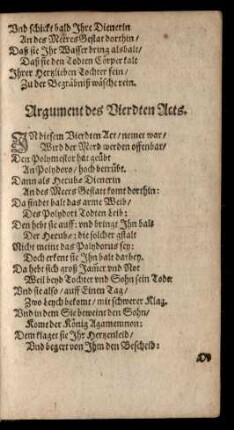 Vnd schickt bald Ihre Dienerin
An des Meeres Gestat dorthin/
Daß sie Ihr Wasser bring alsbalt/
Daß sie den Todten Cörper kalt
Ihrer Hertzlieben Tochter fein/
Zu der Begräbniß wäsche rein.
Argument des Vierdten Acts.
IN diesem Vierdten Act/ nemet war/
Wird der Mord werden offenbar/
Den Polymestor hat geübt
An Polydoro/ hoch betrübt.
Dann als Hecubæ Dienerin
An des Meers Gestatt komt dorthin:
Da findet balt das arme Weib/
Des Polydori Todten Leib:
Den hebt sie auff: vnd bringt Ihn bals
Der Hecubæ: die solcher gstalt
Nicht meint das Polydorus sey:
Doch erkent sie Ihn balt darbey.
Da hebt sich groß Jam̃er vnd Not
Weil beyd Tochter vnd Sohn sein Todt:
Vnd sie also/ auff Einen Tag/
Zwo Leych bekomt/ mit schwerer Klag.
Vnd in dem Sie beweint den Sohn/
Komt der König Agamemnon:
Dem klaget sie Ihr Hertzenleid/
Vnd begert von Ihm den Bescheid: